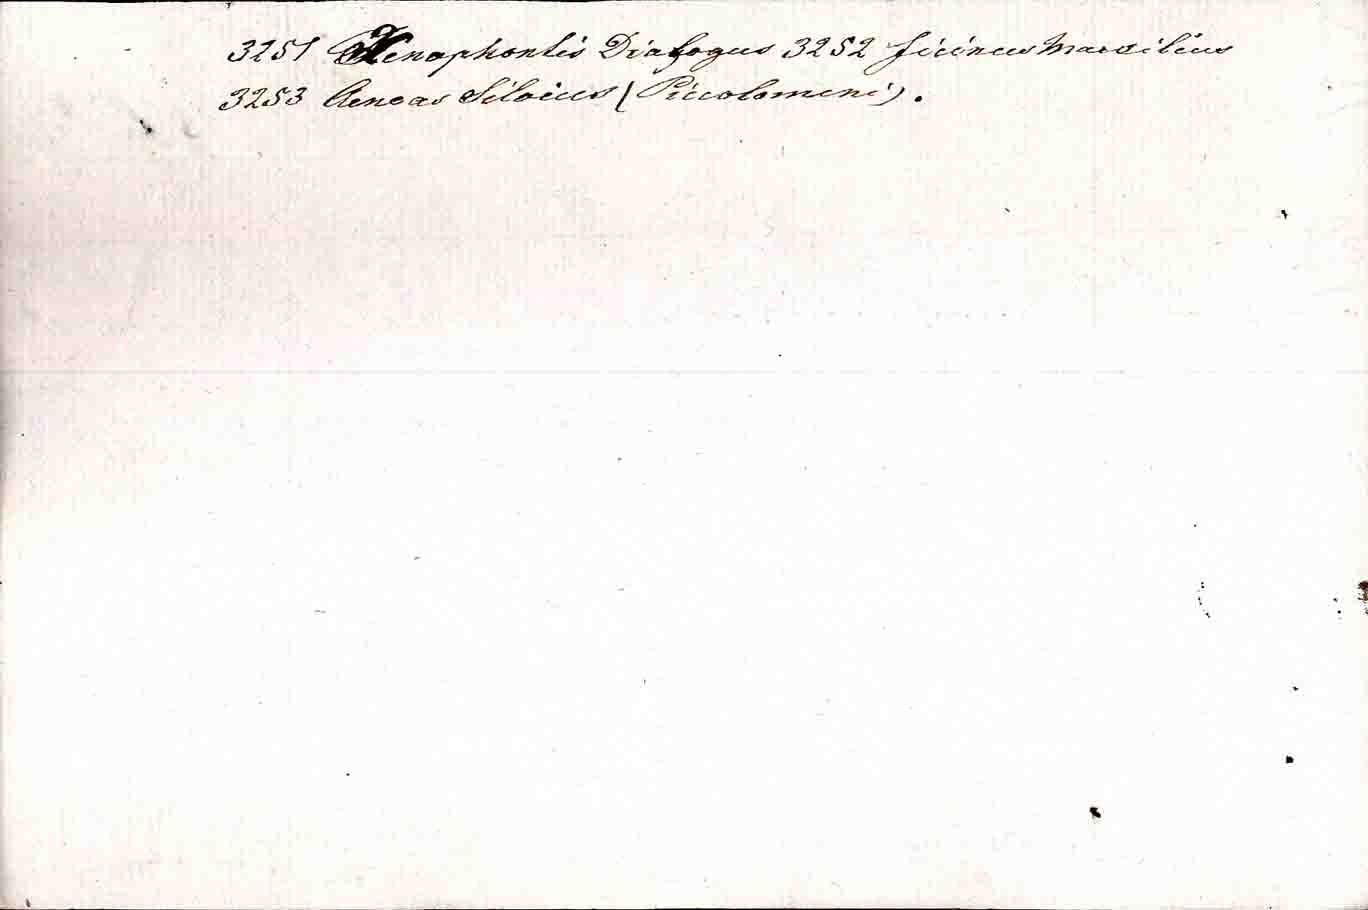 3251 Xenophontis Dialogus 3252 ficinus Marsilius
3253 Aeneas Silvius (Piccolomini).